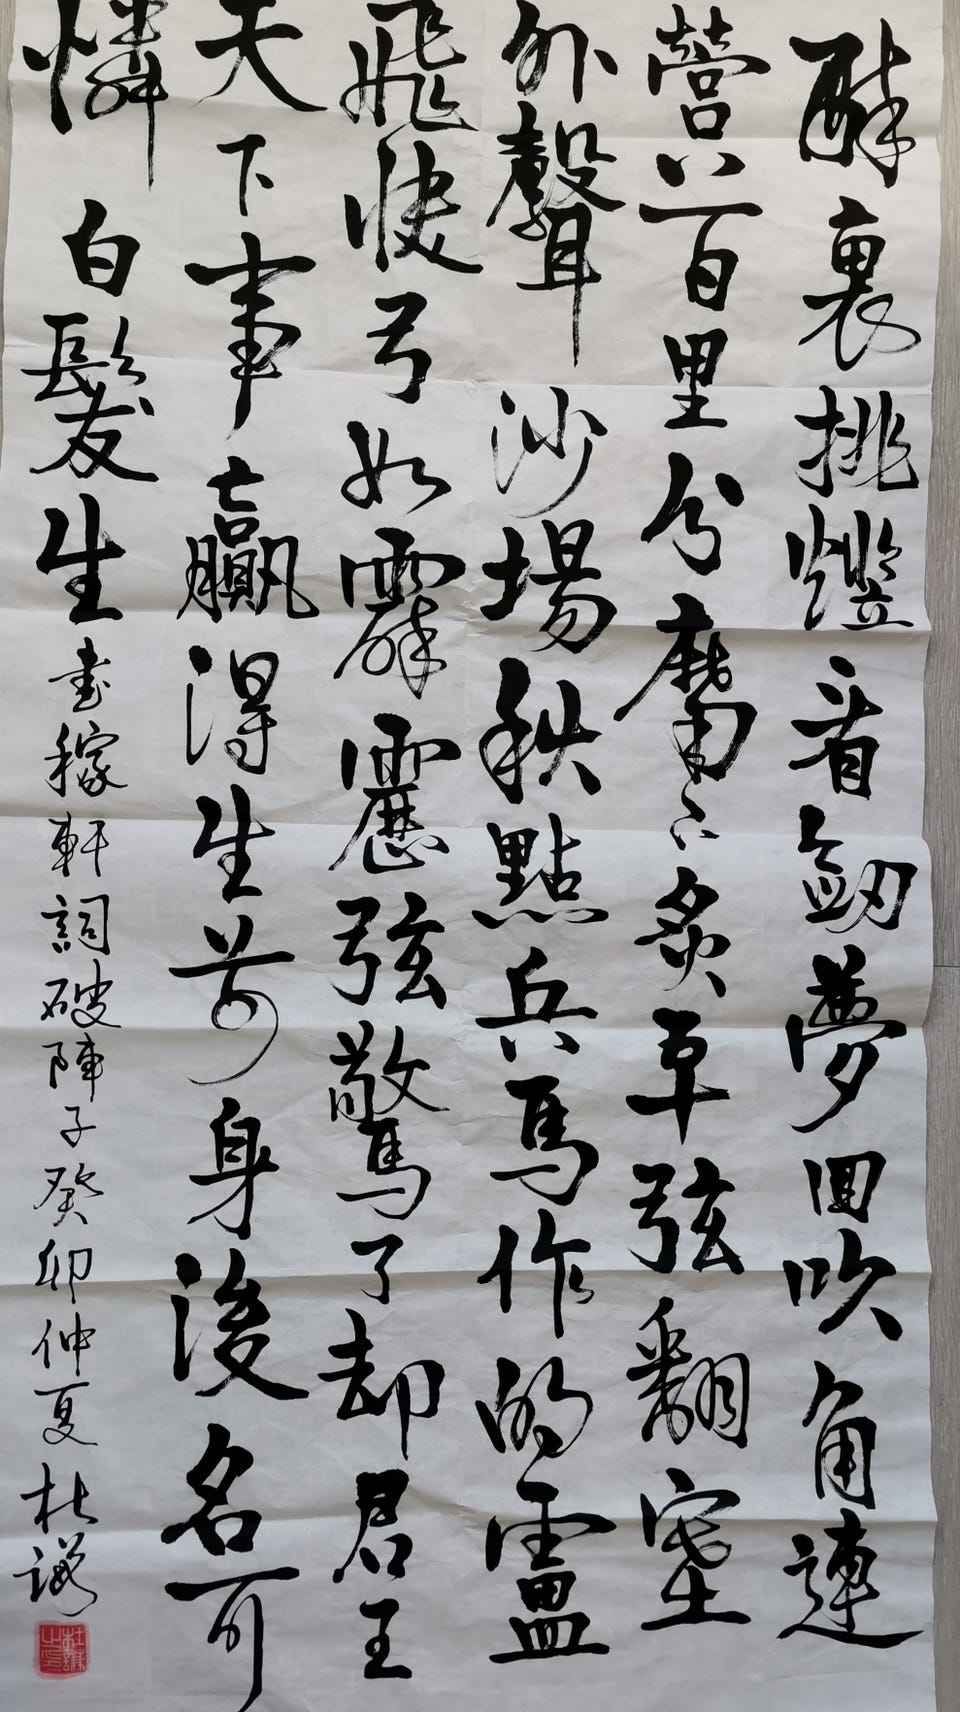 醉裏挑燈看劍夢回吹角連
營八百里分麾下炙五十弦翻塞
外聲沙場秋點兵馬作的盧
飛快弓如霹靂弦驚了却君王
天下事贏得生前身後名可
憐白髮生書稼軒詞破陣子癸卯仲夏杜